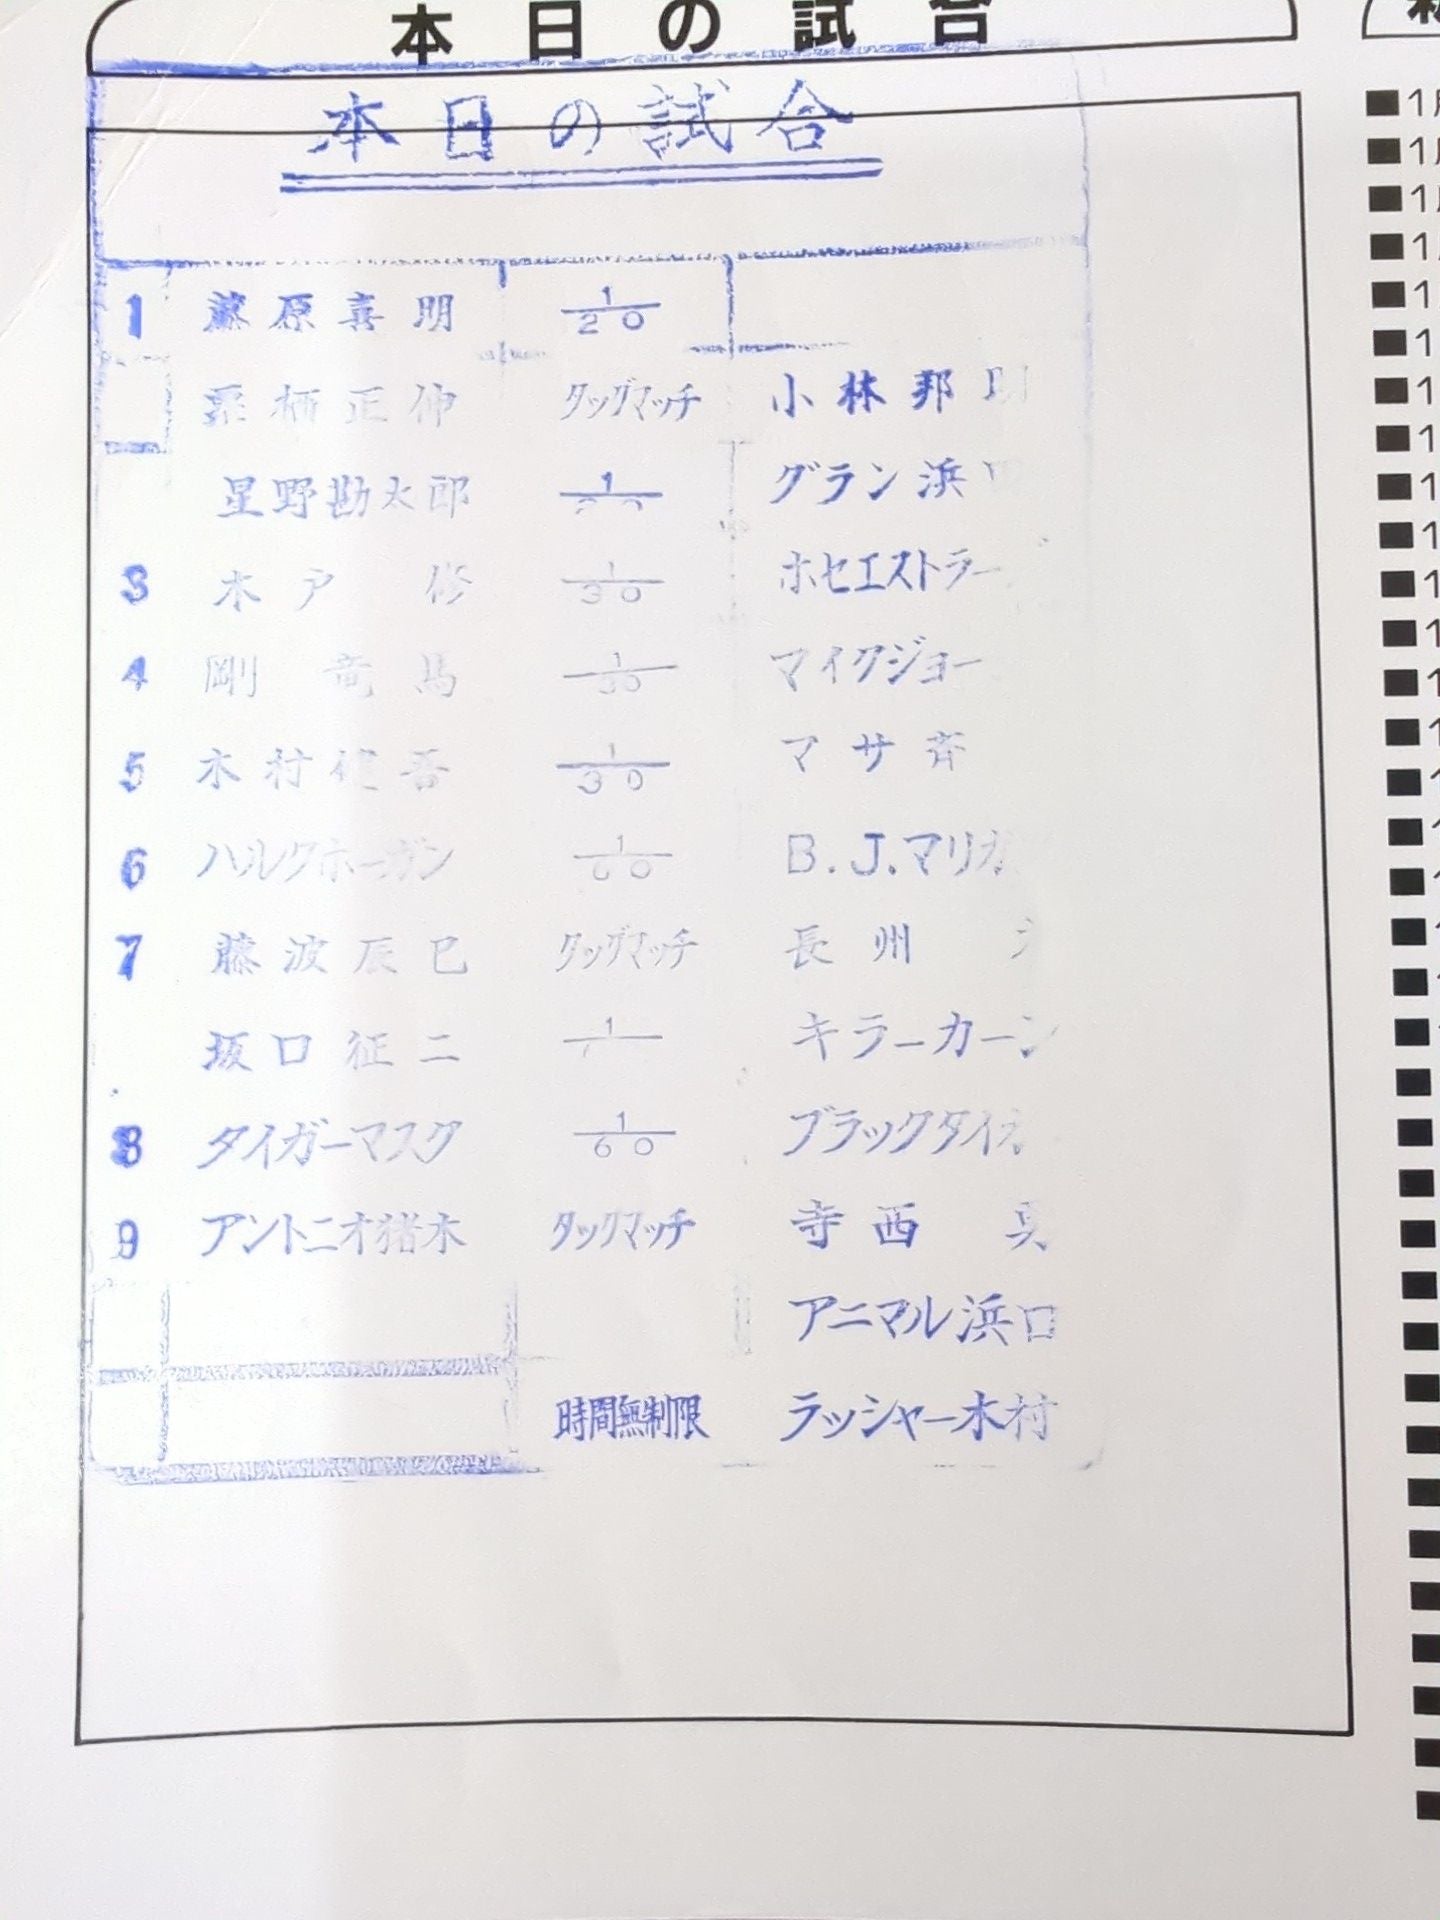 本日の試合
本日の試合
1 藤原喜明 1/20
栗栖正伸 タッグマッチ 小林邦
星野勘太郎 1 グラン浜
3 木戸 修 1/30 ホセエストラー
4 剛 竜馬 1/30 マイクジョー
5 木村健吾 1/30 マサ斉
6 ハルクホーガン 1/60 B.J.マリガ
7 藤波辰巳 タッグマッチ 長州
坂口征二 1 キラーカーン
8 タイガーマスク 1/60 ブラックタイガ
9 アントニオ猪木 タッグマッチ 寺西
アニマル浜口
時間無制限 ラッシャー木村